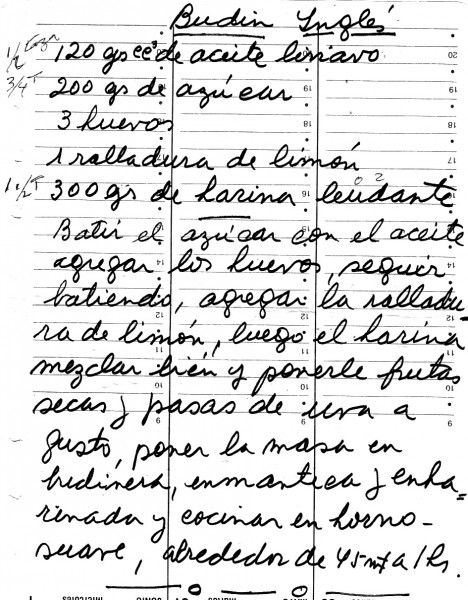 Budin Inglés
1/2 Taza 120 gs cc³ de aceite liviano
3/4 T 200 gs de azúcar
3 huevos
1 ralladura de limón
1 1/2 T 300 gs de harina leudante
Batir el azúcar con el aceite
agregar los huevos, seguir
batiendo, agregar la ralladu-
ra de limón, luego el harina
mezclar bién y ponerle frutas
secas y pasas de uva a
gusto, poner la masa en
budinera, enmanteca y enha-
rinada y cocinar en horno-
suave, alrededor de 45 mt a 1 hs.